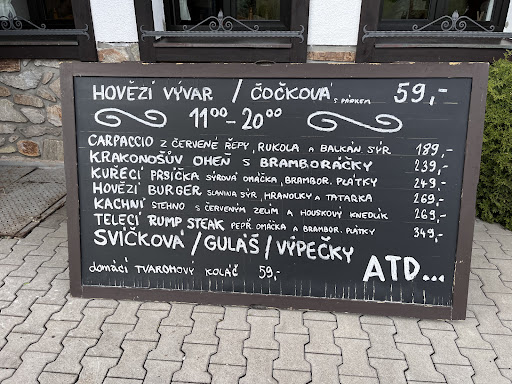 HOVĚZÍ VÝVAR / ČOČKOVÁ S PÁRKEM 59,-
11⁰⁰-20⁰⁰
CARPACCIO Z ČERVENÉ ŘEPY, RUKOLA A BALKÁN SÝR 189,-
KRAKONOŠŮV OHEŇ S BRAMBORÁČKY 239,-
KUŘECÍ PRSÍČKA SÝROVÁ OMÁČKA, BRAMBOR. PLÁTKY 249,-
HOVĚZÍ BURGER SLANINA SÝR, HRANOLKY A TATARKA 269,-
KACHNÍ STEHNO S ČERVENÝM ZELÍM A HOUSKOVÝ KNEDLÍK 269,-
TELECÍ RUMP STEAK PEPŘ. OMÁČKA A BRAMBOR. PLÁTKY 349,-
SVÍČKOVÁ / GULÁŠ / VÝPEČKY
ATD...
domácí TVAROHOVÝ KOLÁČ 59,-